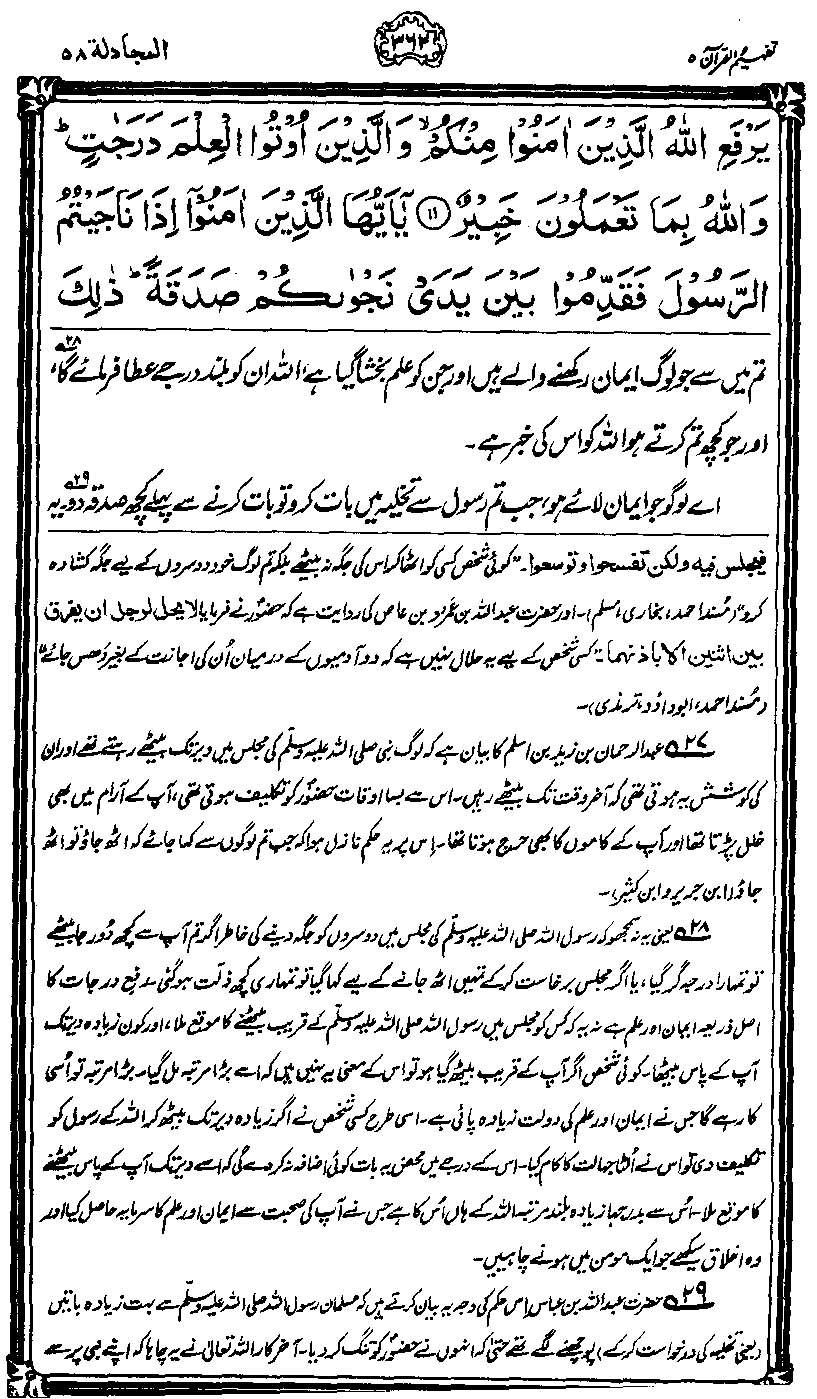 تفہیم القرآن ۵
۳۶۲
المجادلۃ ۵۸
يَرْفَعِ اللّٰهُ الَّذِيْنَ اٰمَنُوْا مِنْكُمْ ۙ وَالَّذِيْنَ اُوْتُوا الْعِلْمَ دَرَجٰتٍ ؕ
وَاللّٰهُ بِمَا تَعْمَلُوْنَ خَبِيْرٌ ⑪ يٰۤاَيُّهَا الَّذِيْنَ اٰمَنُوْۤا اِذَا نَاجَيْتُمُ
الرَّسُوْلَ فَقَدِّمُوْا بَيْنَ يَدَيْ نَجْوٰىكُمْ صَدَقَةً ؕ ذٰلِكَ
تم میں سے جو لوگ ایمان رکھنے والے ہیں اور جن کو علم بخشا گیا ہے، اللہ ان کو بلند درجے عطا فرمائے گا،۲۸
اور جو کچھ تم کرتے ہو اللہ کو اس کی خبر ہے۔
اے لوگو جو ایمان لائے ہو، جب تم رسول سے تخلیہ میں بات کرو تو بات کرنے سے پہلے کچھ صدقہ دو۲۹ یہ
فیجلس فیہ ولکن تفسحوا وتوسعوا۔ "کوئی شخص کسی کو اٹھا کر اس کی جگہ نہ بیٹھے بلکہ تم لوگ خود دوسروں کے لیے جگہ کشادہ
کرو" (مُسند احمد، بخاری، مسلم)۔ اور حضرت عبداللہ بن عَمْرو بن عاص کی روایت ہے کہ حضورؐ نے فرمایا لا یحل لوجل ان یفرق
بین اثنین الا باذنہما۔ "کسی شخص کے لیے یہ حلال نہیں ہے کہ دو آدمیوں کے درمیان اُن کی اجازت کے بغیر دھس جائے"
(مُسند احمد، ابوداؤد، ترمذی)۔
۲۷ عبدالرحمان بن زید بن اسلم کا بیان ہے کہ لوگ نبی صلی اللہ علیہ وسلّم کی مجلس میں دیر تک بیٹھے رہتے تھے اور ان
کی کوشش یہ ہوتی تھی کہ آخر وقت تک بیٹھے رہیں۔ اس سے بسا اوقات حضورؐ کو تکلیف ہوتی تھی، آپ کے آرام میں بھی
خلل پڑتا تھا اور آپ کے کاموں کا بھی حرج ہوتا تھا۔ اس پر یہ حکم نازل ہوا کہ جب تم لوگوں سے کہا جائے کہ اٹھ جاؤ تو اٹھ
جاؤ (ابن جریر و ابن کثیر)۔
۲۸ یعنی یہ نہ سمجھو کہ رسول اللہ صلی اللہ علیہ وسلّم کی مجلس میں دوسروں کو جگہ دینے کی خاطر اگر تم آپ سے کچھ دُور جا بیٹھے
تو تمہارا درجہ گر گیا، یا اگر مجلس برخاست کر کے تمہیں اٹھ جانے کے لیے کہا گیا تو تمہاری کچھ ذلت ہو گئی۔ رفع درجات کا
اصل ذریعہ ایمان اور علم ہے نہ یہ کہ کس کو مجلس میں رسول اللہ صلی اللہ علیہ وسلّم کے قریب بیٹھنے کا موقع ملا، اور کون زیادہ دیر تک
آپ کے پاس بیٹھا۔ کوئی شخص اگر آپ کے قریب بیٹھ گیا ہو تو اس کے معنی یہ نہیں ہیں کہ اسے بڑا مرتبہ مل گیا۔ بڑا مرتبہ تو اُسی
کا رہے گا جس نے ایمان اور علم کی دولت زیادہ پائی ہے۔ اسی طرح کسی شخص نے اگر زیادہ دیر تک بیٹھ کر اللہ کے رسول کو
تکلیف دی تو اس نے اُلٹا جہالت کا کام کیا۔ اس کے درجے میں محض یہ بات کوئی اضافہ نہ کر دے گی کہ اسے دیر تک آپ کے پاس بیٹھنے
کا موقع ملا۔ اُس سے بدرجہا زیادہ بلند مرتبہ اللہ کے ہاں اُس کا ہے جس نے آپ کی صحبت سے ایمان اور علم کا سرمایہ حاصل کیا اور
وہ اخلاق سیکھے جو ایک مومن میں ہونے چاہییں۔
۲۹ حضرت عبداللہ بن عباس اِس حکم کی وجہ یہ بیان کرتے ہیں کہ مسلمان رسول اللہ صلی اللہ علیہ وسلّم سے بہت زیادہ باتیں
(یعنی تخلیہ کی درخواست کر کے) پوچھنے لگے تھے حتیٰ کہ انہوں نے حضورؐ کو تنگ کر دیا۔ آخر کار اللہ تعالیٰ نے یہ چاہا کہ اپنے نبی پر سے